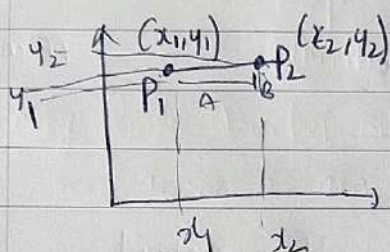 y₂ (x₁,y₁) (x₂,y₂)
P₂
y₁ P₁ A B
x₁ x₂